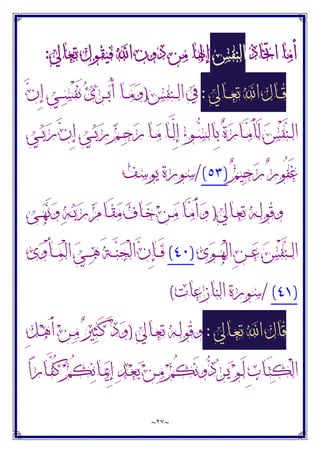 أما اتخاذ النفس إلها من دون الله فيقول تعالى:
قال الله تعالى: في النفس (وَمَا أُبَرِّئُ نَفْسِي إِنَّ
النَّفْسَ لَأَمَّارَةٌ بِالسُّوءِ إِلَّا مَا رَحِمَ رَبِّي إِنَّ رَبِّي
غَفُورٌ رَحِيمٌ (٥٣) / سورة يوسف
وقوله تعالى (وَأَمَّا مَنْ خَافَ مَقَامَ رَبِّهِ وَنَهَى
النَّفْسَ عَنِ الْهَوَىٰ (٤٠) فَإِنَّ الْجَنَّةَ هِيَ الْمَأْوَىٰ
(٤١) / سورة النازعات)
قال الله تعالى: وقوله تعالى (وَدَّ كَثِيرٌ مِنْ أَهْلِ
الْكِتَابِ لَوْ يَرُدُّونَكُمْ مِنْ بَعْدِ إِيمَانِكُمْ كُفَّارًا
~٢٧~